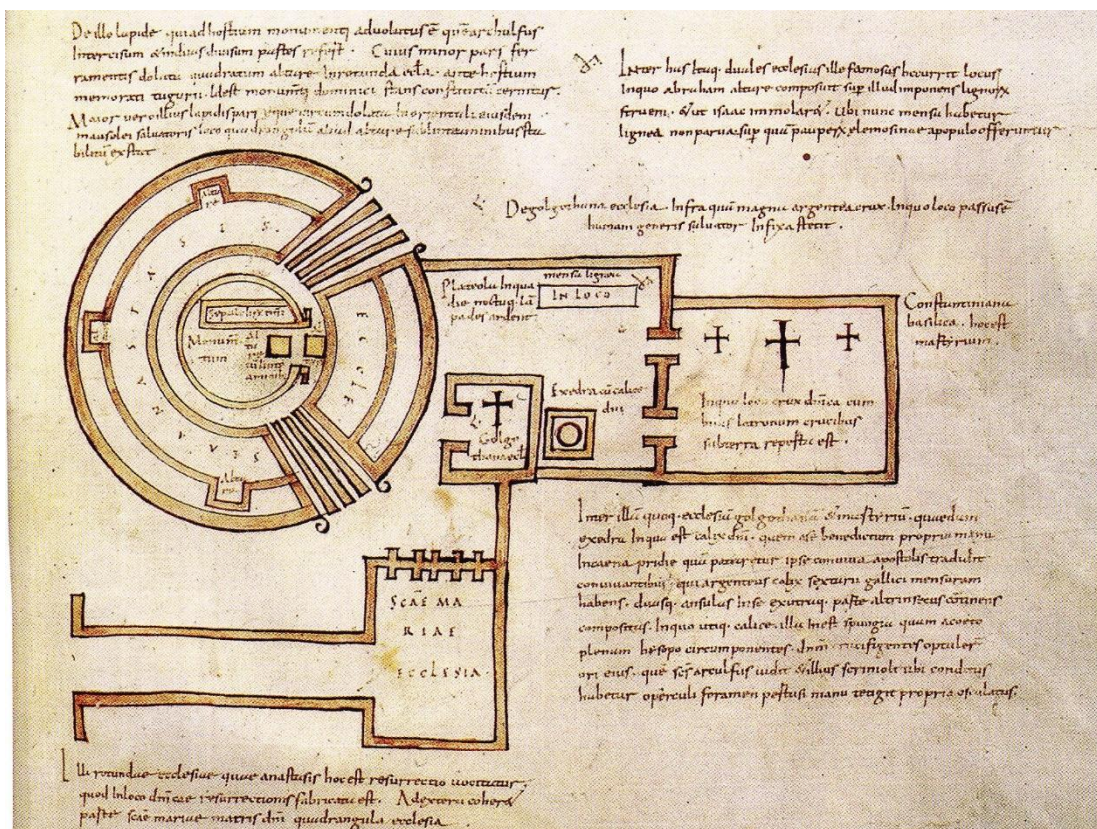 De illo lapide qui ad hostium monumenti advolutus ē quē arculfus
Intercisum & in duas divisum partes refert . Cuius minor pars fer
ramentis dolata quadratum altare In rotunda eccła . ante hostium
memorati tugurii . idest monumti dominici stans constitutū cernitur .
Maior vero illius lapidis pars eque circumdolata In orientali eiusdem
mausolei salvatoris loco quadrangulū aliud altare sub linteaminibus sta
bilitū extat .
Inter has itaq . duales ecclesias ille famosus hocurrit locus
Inquo abraham altare composuit sup illud imponens lignorū
struem . & ut isaac immolar& . Ubi nunc mensa habetur
lignea non parva sup quā pauperx elemosinae apopulo offeruntur
De golgothana ecclesia . Infra quā magna argentea crux . Inquo loco passus ē
humani generis salvator Infixa stetit .
Altare
ANASTASIS
ECCLE
Altare
Sepulchrum
Monumentum
Altare
Plateola Inqua
die noctuq . lā
pades ardent .
mensa lignea
IN LOCO
Constantiniana
basilica . hoc est
martyrium .
Exedra cū calice
dnī
Golgo
thana eccł
Inquo loco crux dnīca cum
binis latronum crucibus
subterra reperta est .
Inter illā quoq . ecclesiā golgothanā & martyriū . quaedam
exedra Inqua est calix dnī . quem ase benedictum propria manu
Incaena pridie quā pateretur ipse conviva apostolis tradidit
convivantibus ; qui argenteus calix sextarii gallici mensuram
habens . duasq . ansulas Inse exutraq . parte altrinsecus cōtinens
compositas . Inquo utiq . calice . illa Inest spungia quam aceto
plenam hesopo circumponentes . dnm crucifigentes optuler
ori eius . quē scs arculfus vidit & illius scrinioli ubi conditus
habetur operculi foramen pertusi manu tetigit propria osculatus .
SCĀE MA
RIAE
ECCLESIA .
Illi rotundae ecclesiae quae anastasis hoc est resurrectio vocitatur
quod Inloco dnīcae resurrectionis fabricata est . Adextera coher&
parte scae mariae matris dnī quadrangula ecclesia .